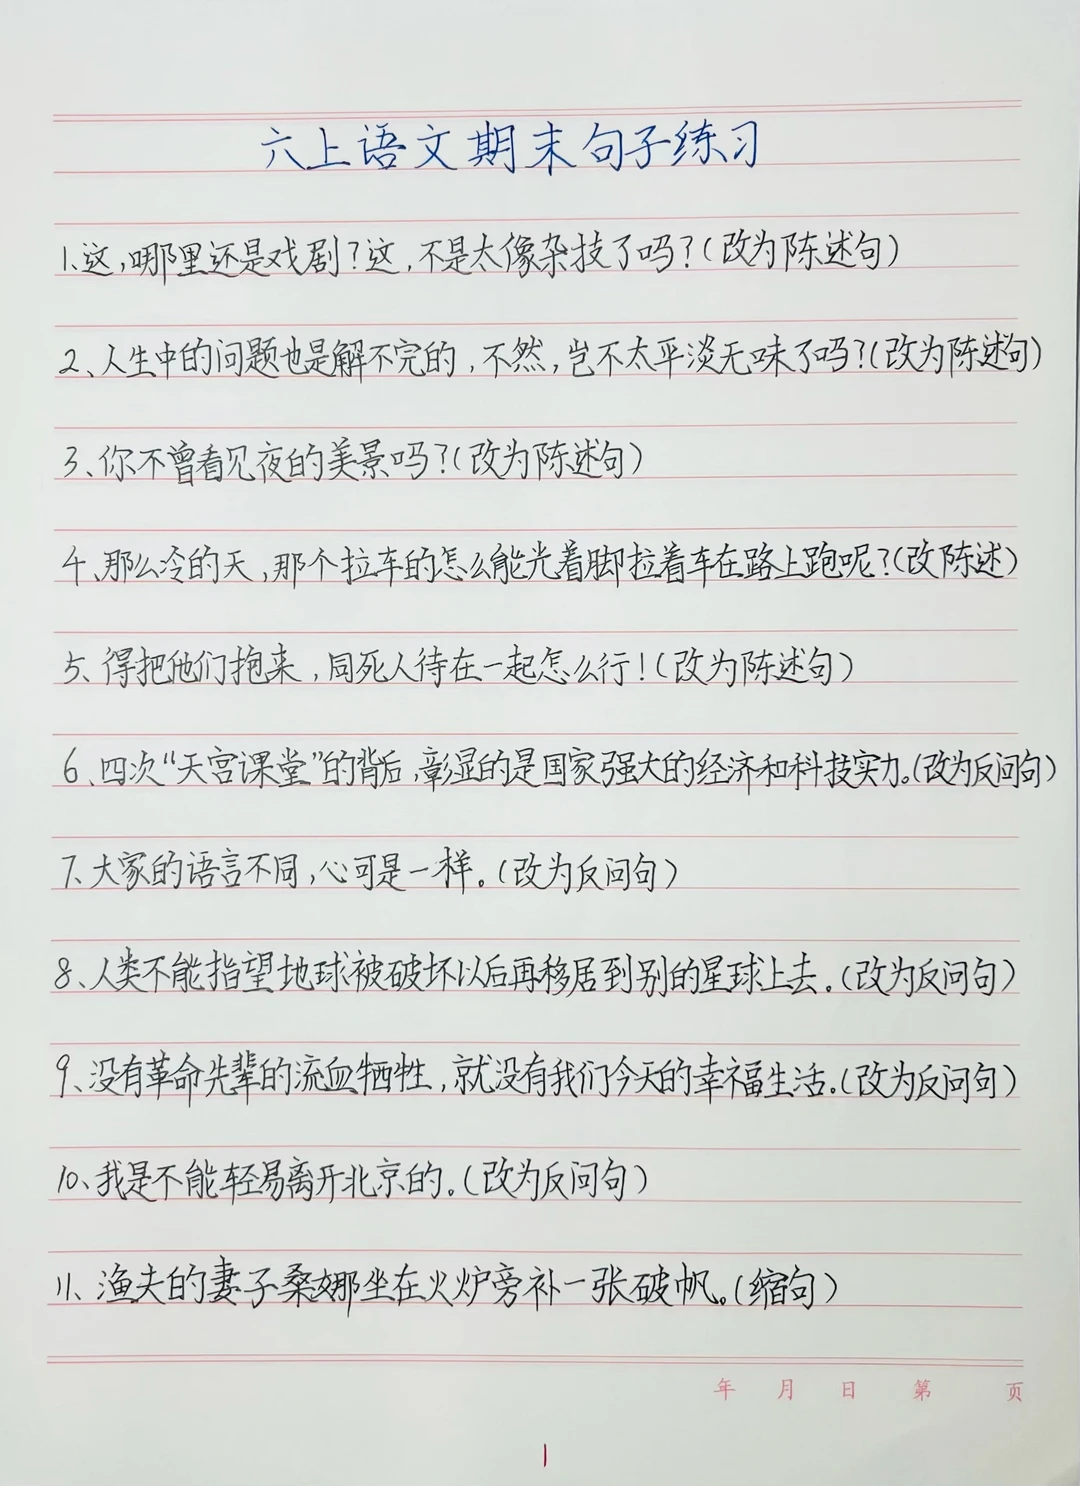 六上语文期末句子练习
1.这,哪里还是戏剧?这,不是太像杂技了吗?(改为陈述句)
2、人生中的问题也是解不完的,不然,岂不太平淡无味了吗?(改为陈述句)
3、你不曾看见夜的美景吗?(改为陈述句)
4、那么冷的天,那个拉车的怎么能光着脚拉着车在路上跑呢?(改陈述)
5、得把他们抱来,同死人待在一起怎么行!(改为陈述句)
6、四次“天宫课堂”的背后,彰显的是国家强大的经济和科技实力。(改为反问句)
7、大家的语言不同,心可是一样。(改为反问句)
8、人类不能指望地球被破坏以后再移居到别的星球上去。(改为反问句)
9、没有革命先辈的流血牺牲,就没有我们今天的幸福生活.(改为反问句)
10、我是不能轻易离开北京的。(改为反问句)
11、渔夫的妻子桑娜坐在火炉旁补一张破帆。(缩句)
年 月 日 第 页
1